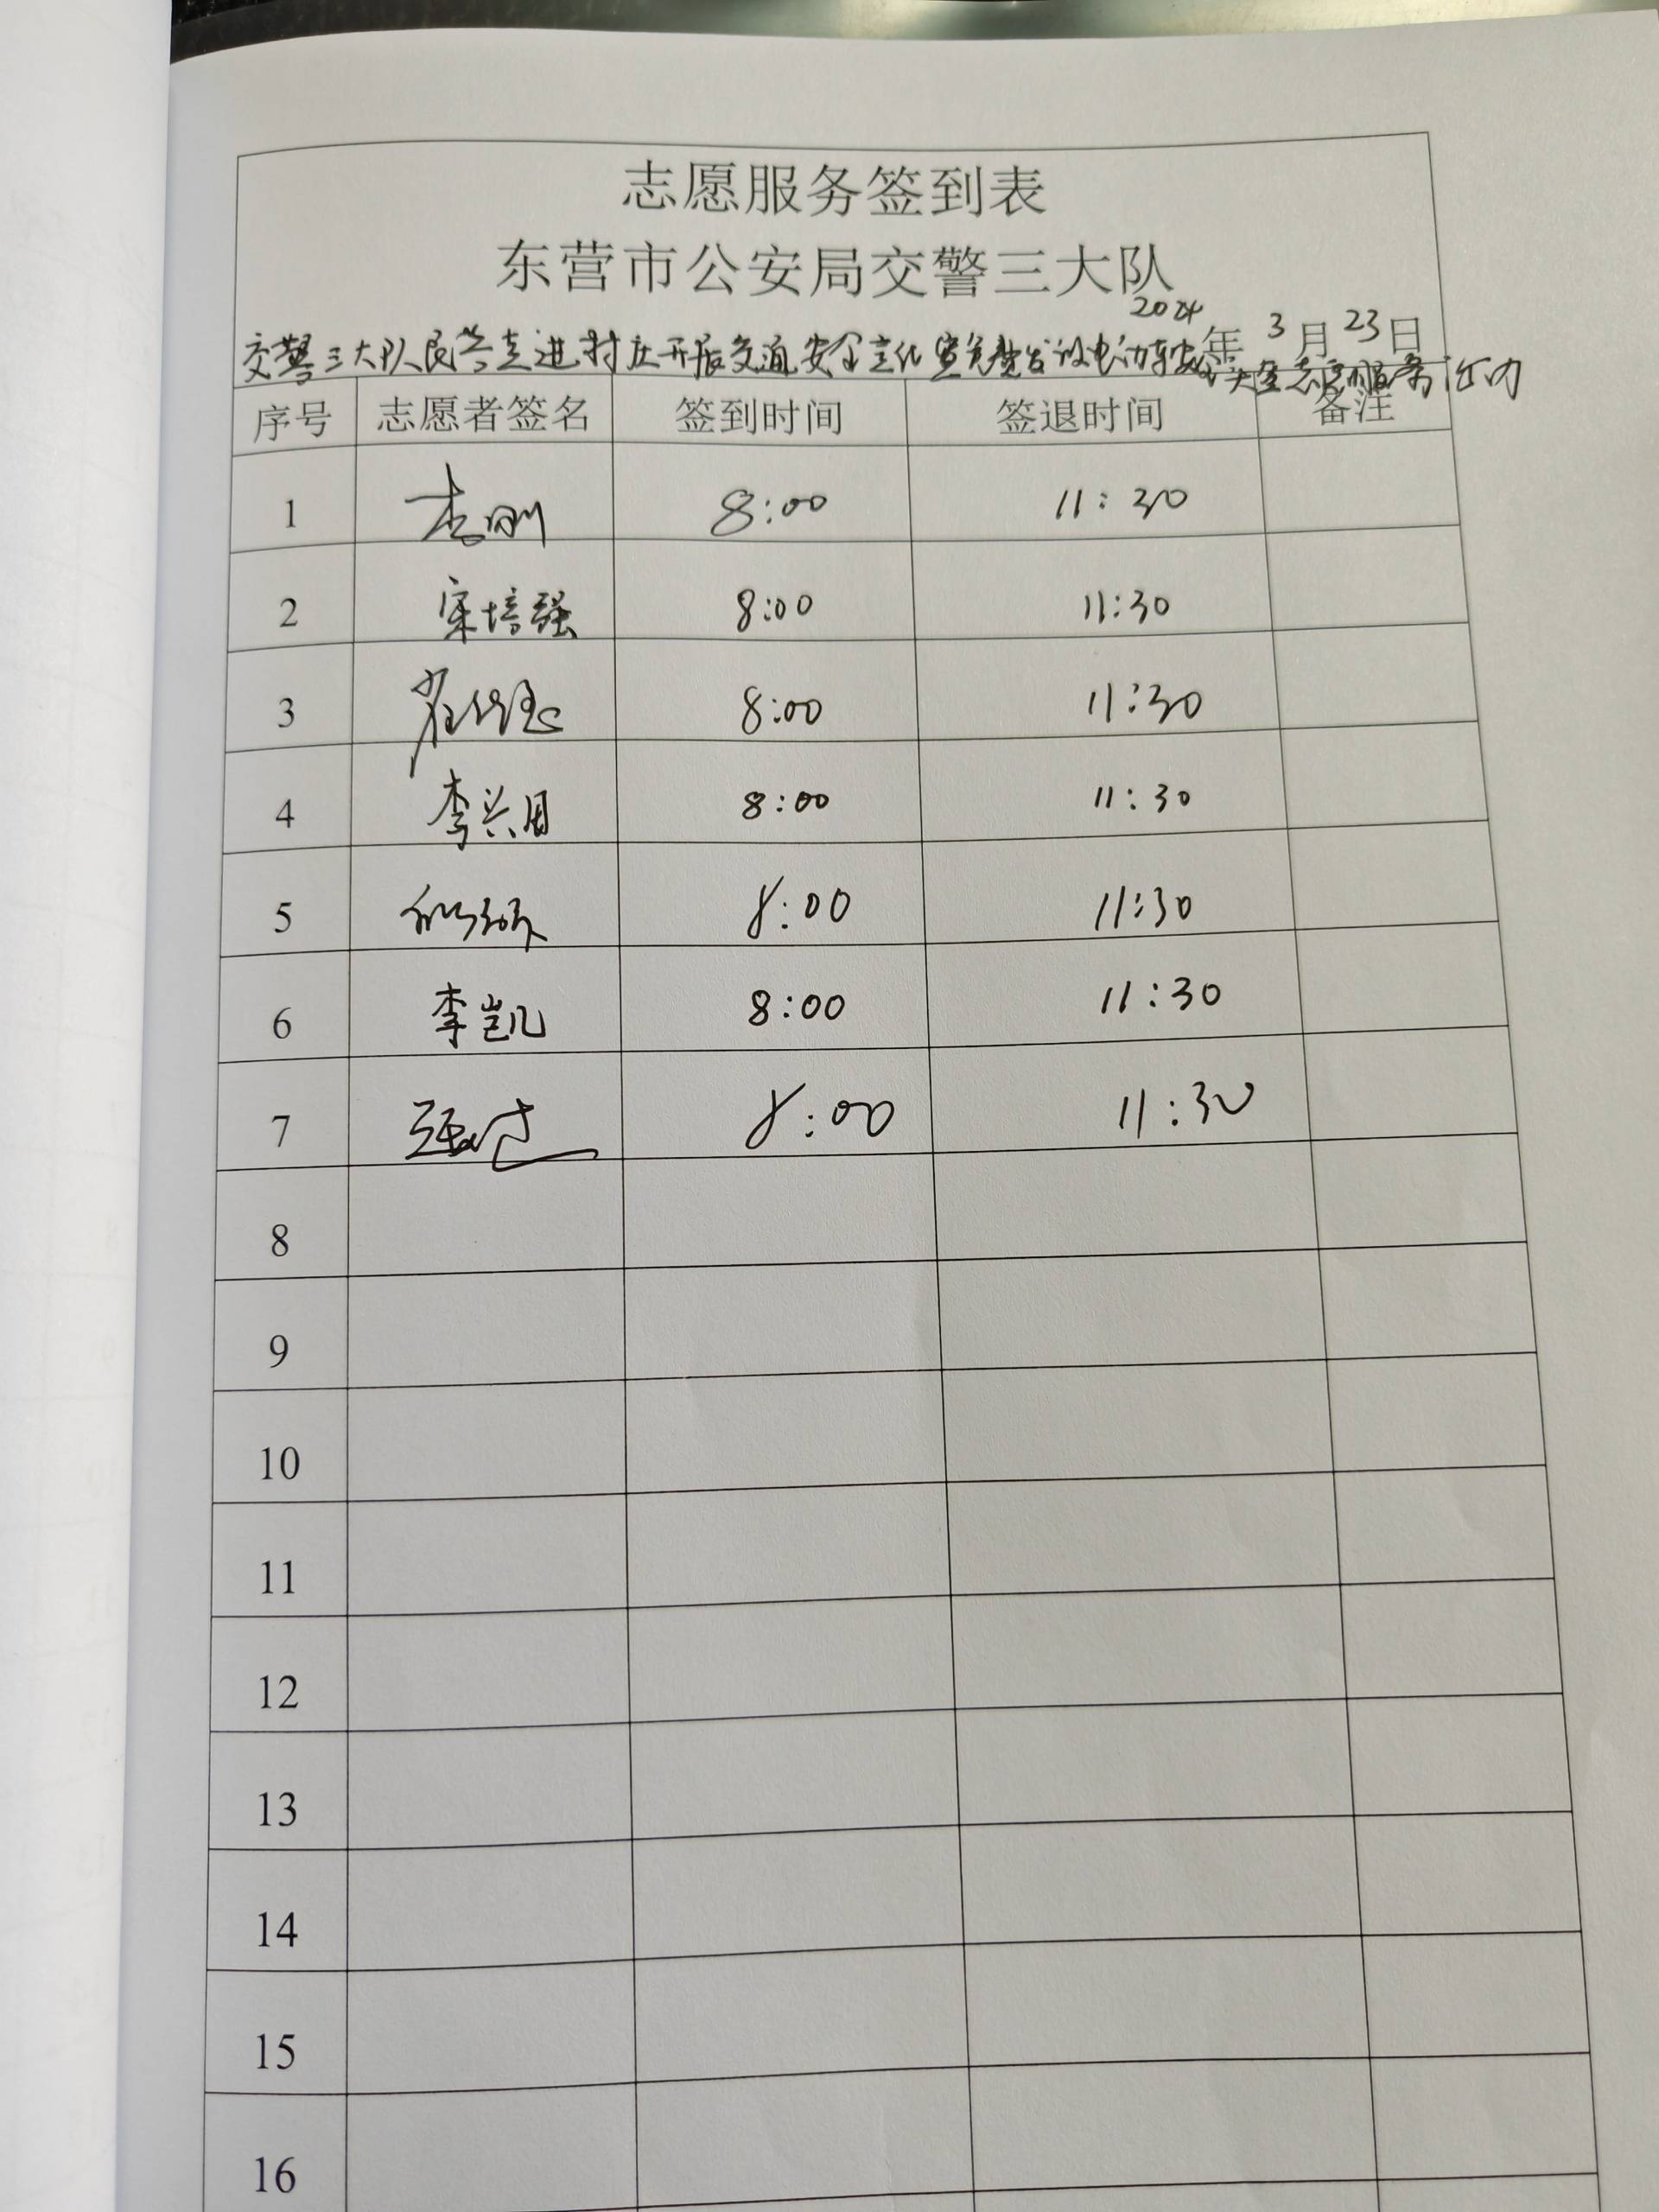 志愿服务签到表
东营市公安局交警三大队
2024年3月23日
交警三大队民警走进村庄开展交通安全文化宣免费发放电动车安全头盔志愿服务活动
序号 志愿者签名 签到时间 签退时间 备注
1 李刚 8:00 11:30
2 宋培强 8:00 11:30
3 8:00 11:30
4 李兴国 8:00 11:30
5 8:00 11:30
6 李凯 8:00 11:30
7 8:00 11:30
8
9
10
11
12
13
14
15
16